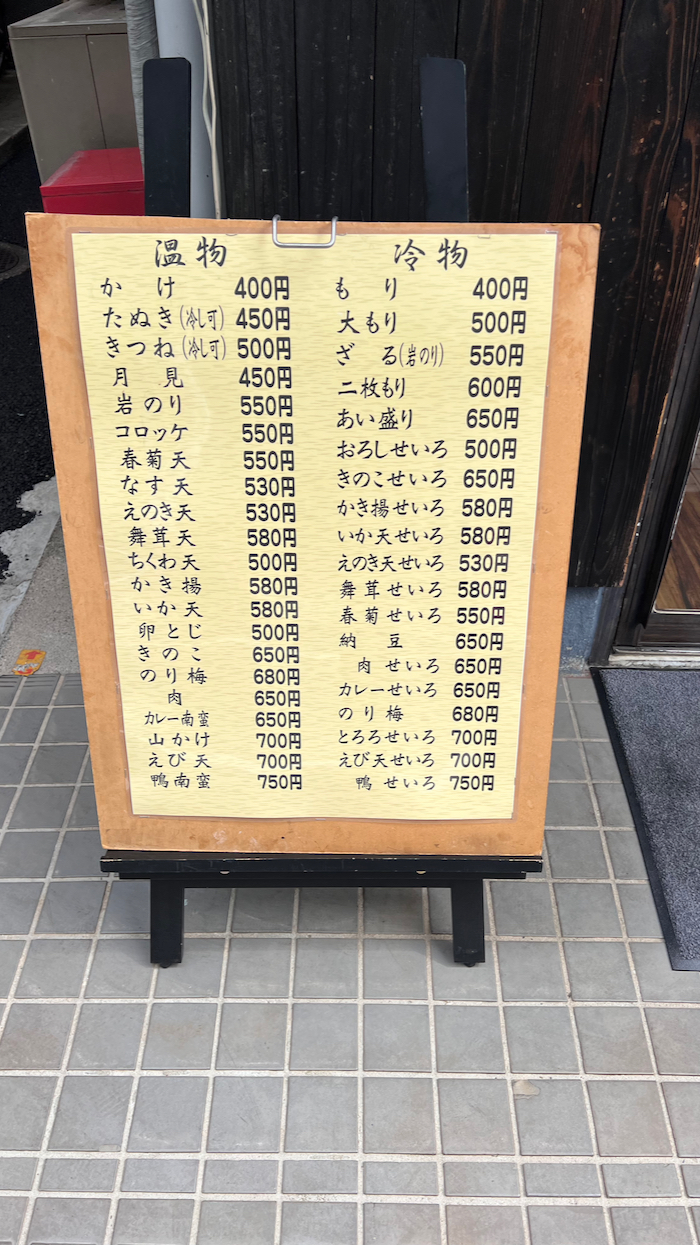 温物
かけ 400円
たぬき(冷し可) 450円
きつね(冷し可) 500円
月見 450円
岩のり 550円
コロッケ 550円
春菊天 550円
なす天 530円
えのき天 530円
舞茸天 580円
ちくわ天 500円
かき揚 580円
いか天 580円
卵とじ 500円
きのこ 650円
のり梅 680円
肉 650円
カレー南蛮 650円
山かけ 700円
えび天 700円
鴨南蛮 750円
冷物
もり 400円
大もり 500円
ざる(岩のり) 550円
二枚もり 600円
あい盛り 650円
おろしせいろ 500円
きのこせいろ 650円
かき揚せいろ 580円
いか天せいろ 580円
えのき天せいろ 530円
舞茸せいろ 580円
春菊せいろ 550円
納豆 650円
肉せいろ 650円
カレーせいろ 650円
のり梅 680円
とろろせいろ 700円
えび天せいろ 700円
鴨せいろ 750円